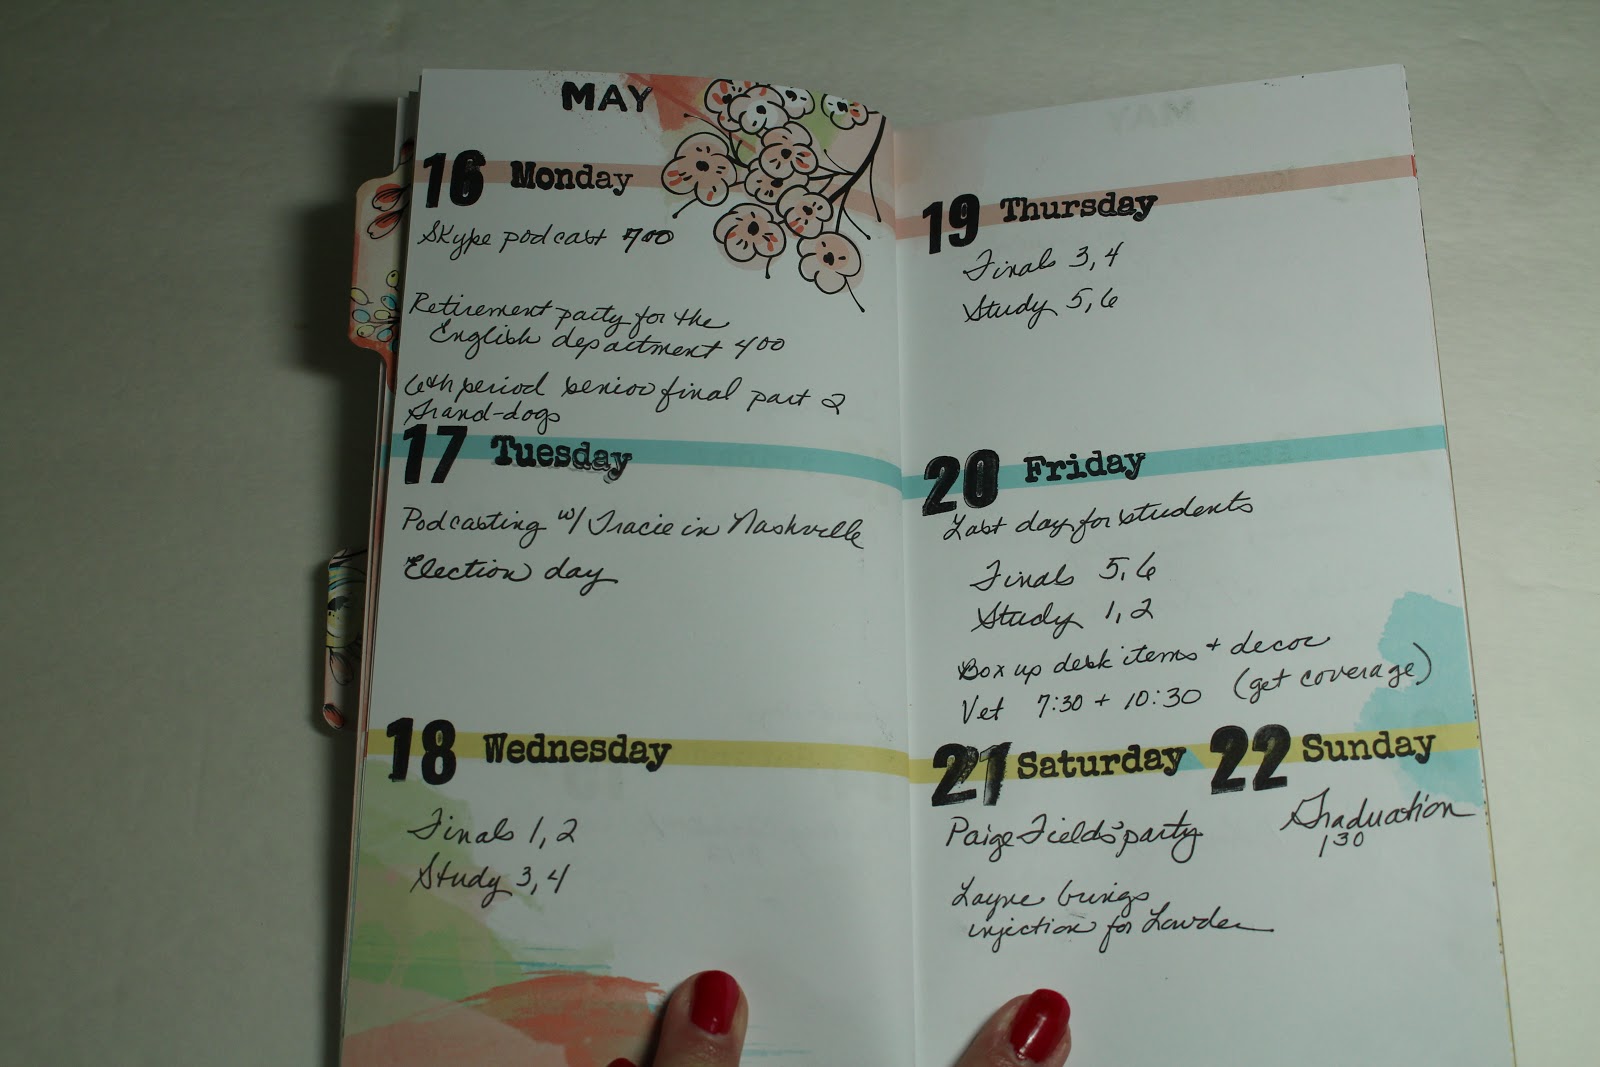 MAY
16 Monday
Skype podcast 700
Retirement party for the
English department 400
6th period senior final part 2
Grand-dogs
17 Tuesday
Podcasting w/ Tracie in Nashville
Election day
18 Wednesday
Finals 1, 2
Study 3, 4
19 Thursday
Finals 3, 4
Study 5, 6
20 Friday
Last day for students
Finals 5, 6
Study 1, 2
Box up desk items + decor
Vet 7:30 + 10:30 (get coverage)
21 Saturday
Paige Fields' party
Layne brings
injection for Lowder
22 Sunday
Graduation
130